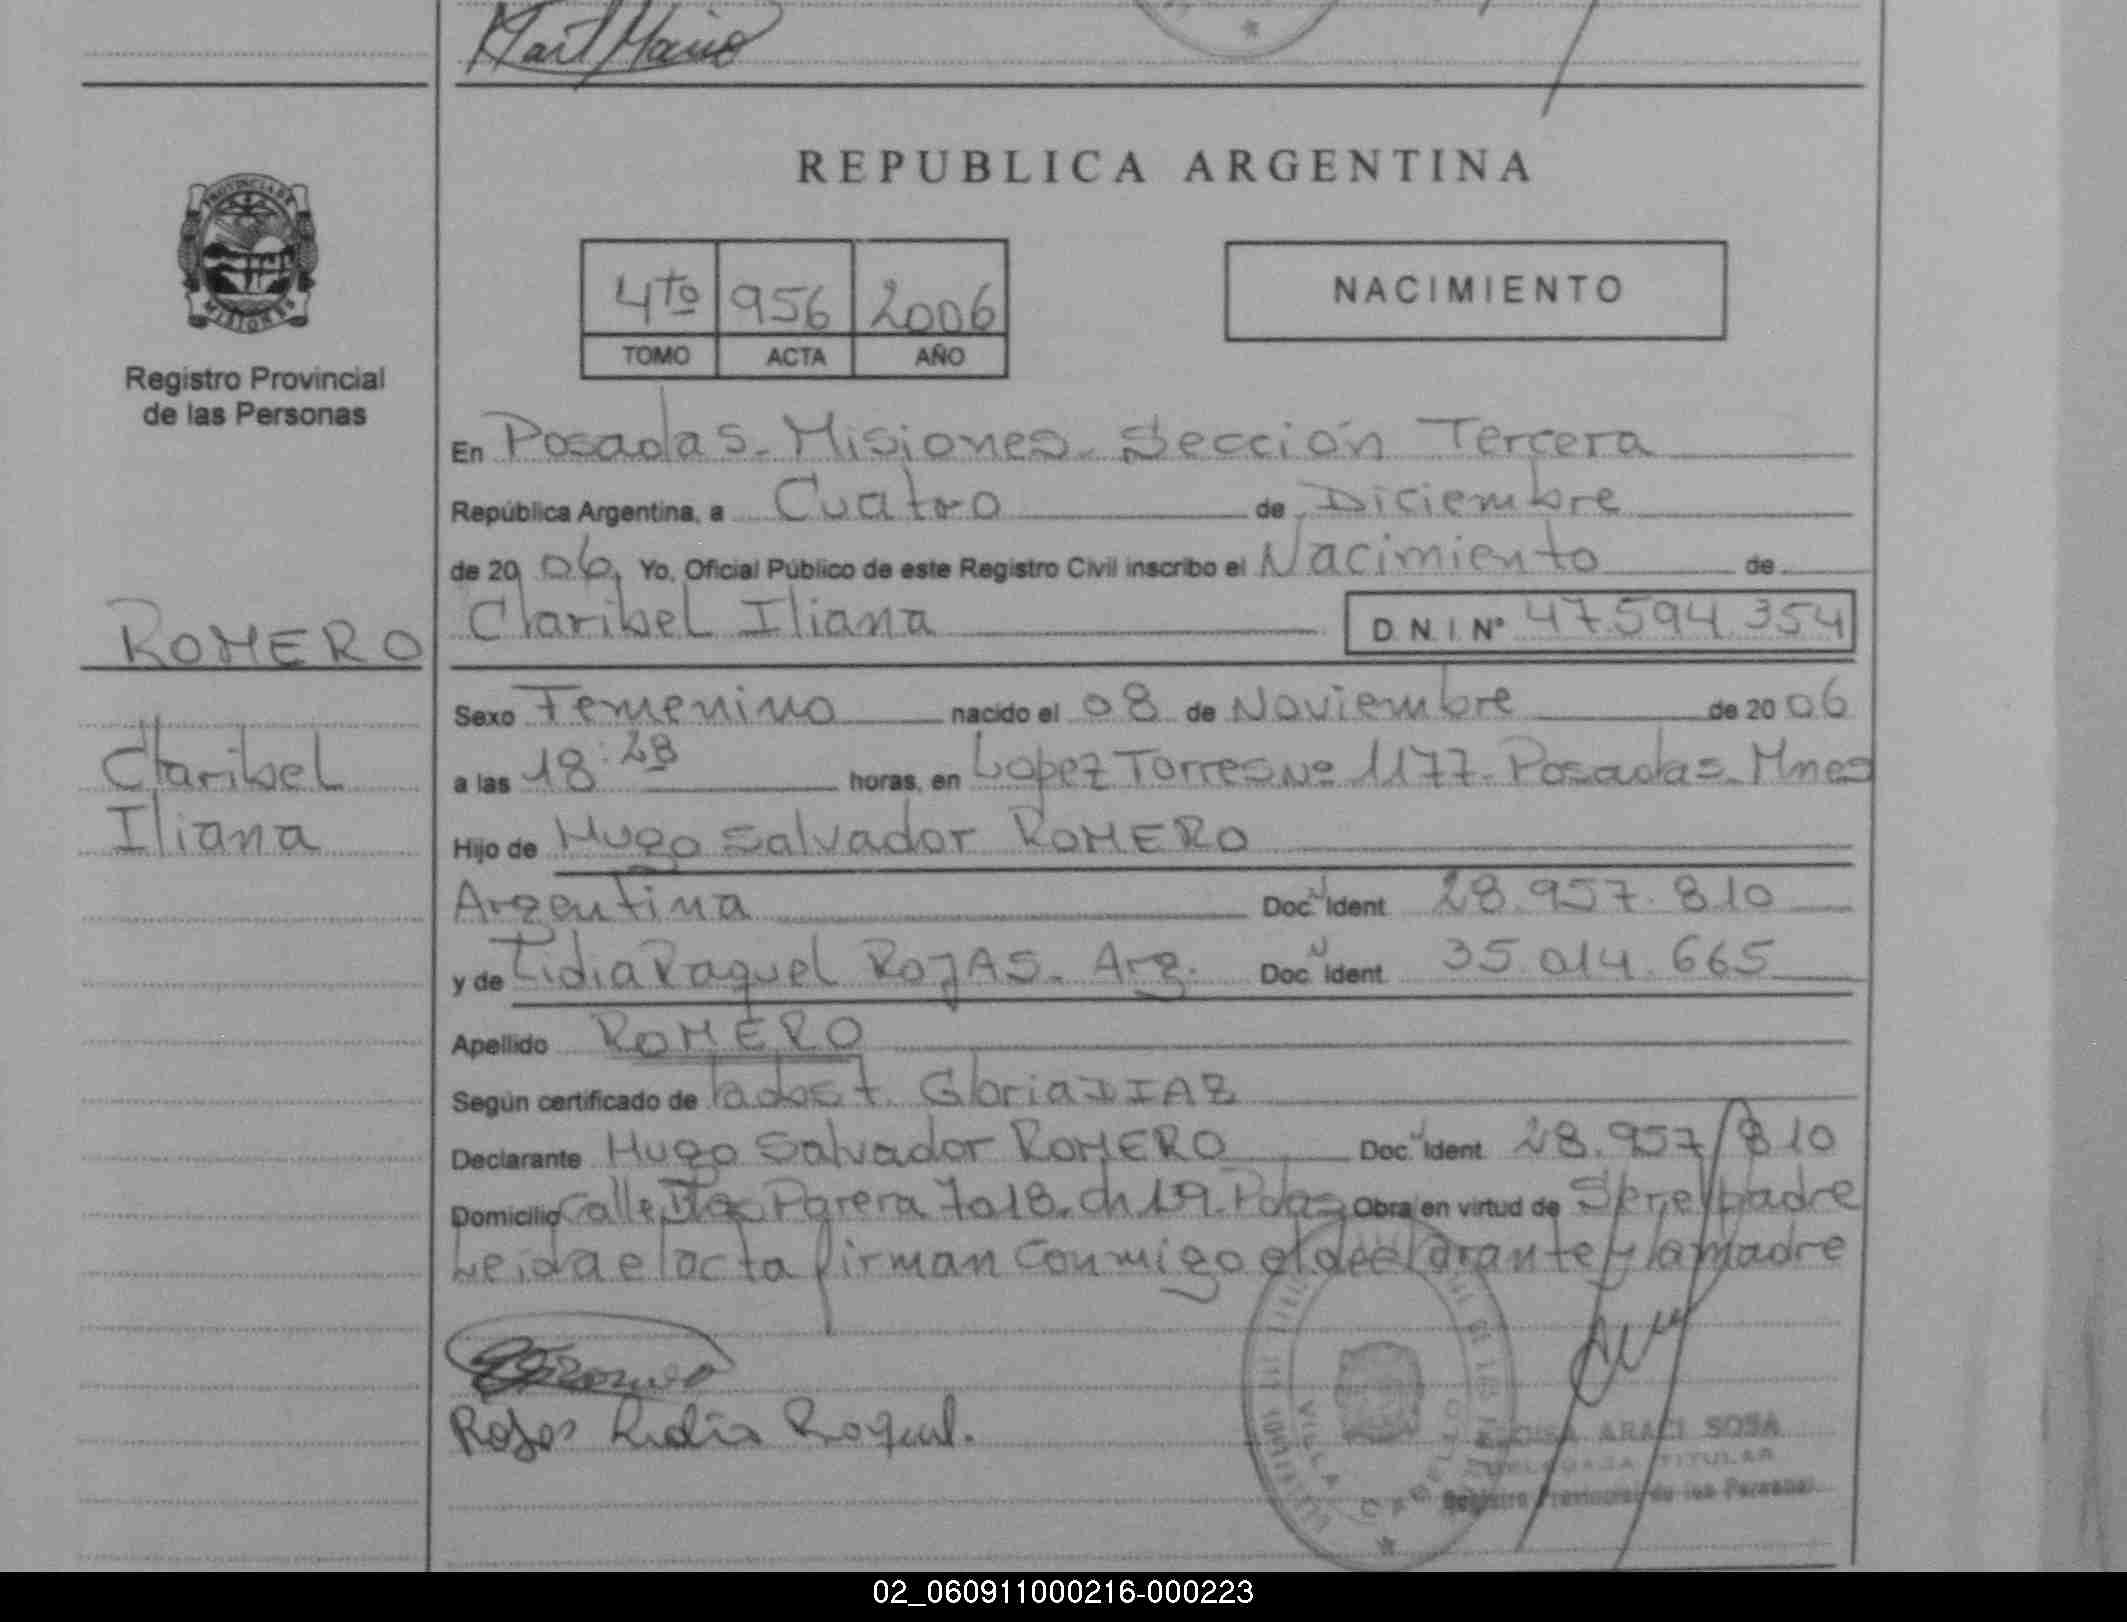 Mart Mario
REPUBLICA ARGENTINA
PROVINCIA DE
MISIONES
4to 956 2006
TOMO ACTA AÑO
NACIMIENTO
Registro Provincial
de las Personas
En Posadas - Misiones - Sección Tercera
República Argentina, a Cuatro de Diciembre
de 20 06, Yo, Oficial Público de este Registro Civil inscribo el Nacimiento de
ROMERO
Claribel Iliana D.N.I.Nº 47.594.354
Sexo Femenino nacido el 08 de Noviembre de 20 06
Claribel
a las 18:28 horas, en Lopez Torres Nº 1177 - Posadas - Mnes
Iliana
Hijo de Hugo Salvador ROMERO
Argentina Doc. Ident 28.957.810
y de Lidia Raquel ROJAS - Arg. Doc. Ident. 35.014.665
Apellido ROMERO
Según certificado de Gloria DIAZ
Declarante Hugo Salvador ROMERO Doc. Ident. 28.957.810
Domicilio Calle Parera 7018 - ch 19 - Pdas Obra en virtud de Ser el padre
Leida el acta firman conmigo el declarante y la madre
Rojas Lidia Raquel.
VILLA CABELLO
ARACI SOSA
DELEGADA TITULAR
Registro Provincial de las Personas
02_060911000216-000223